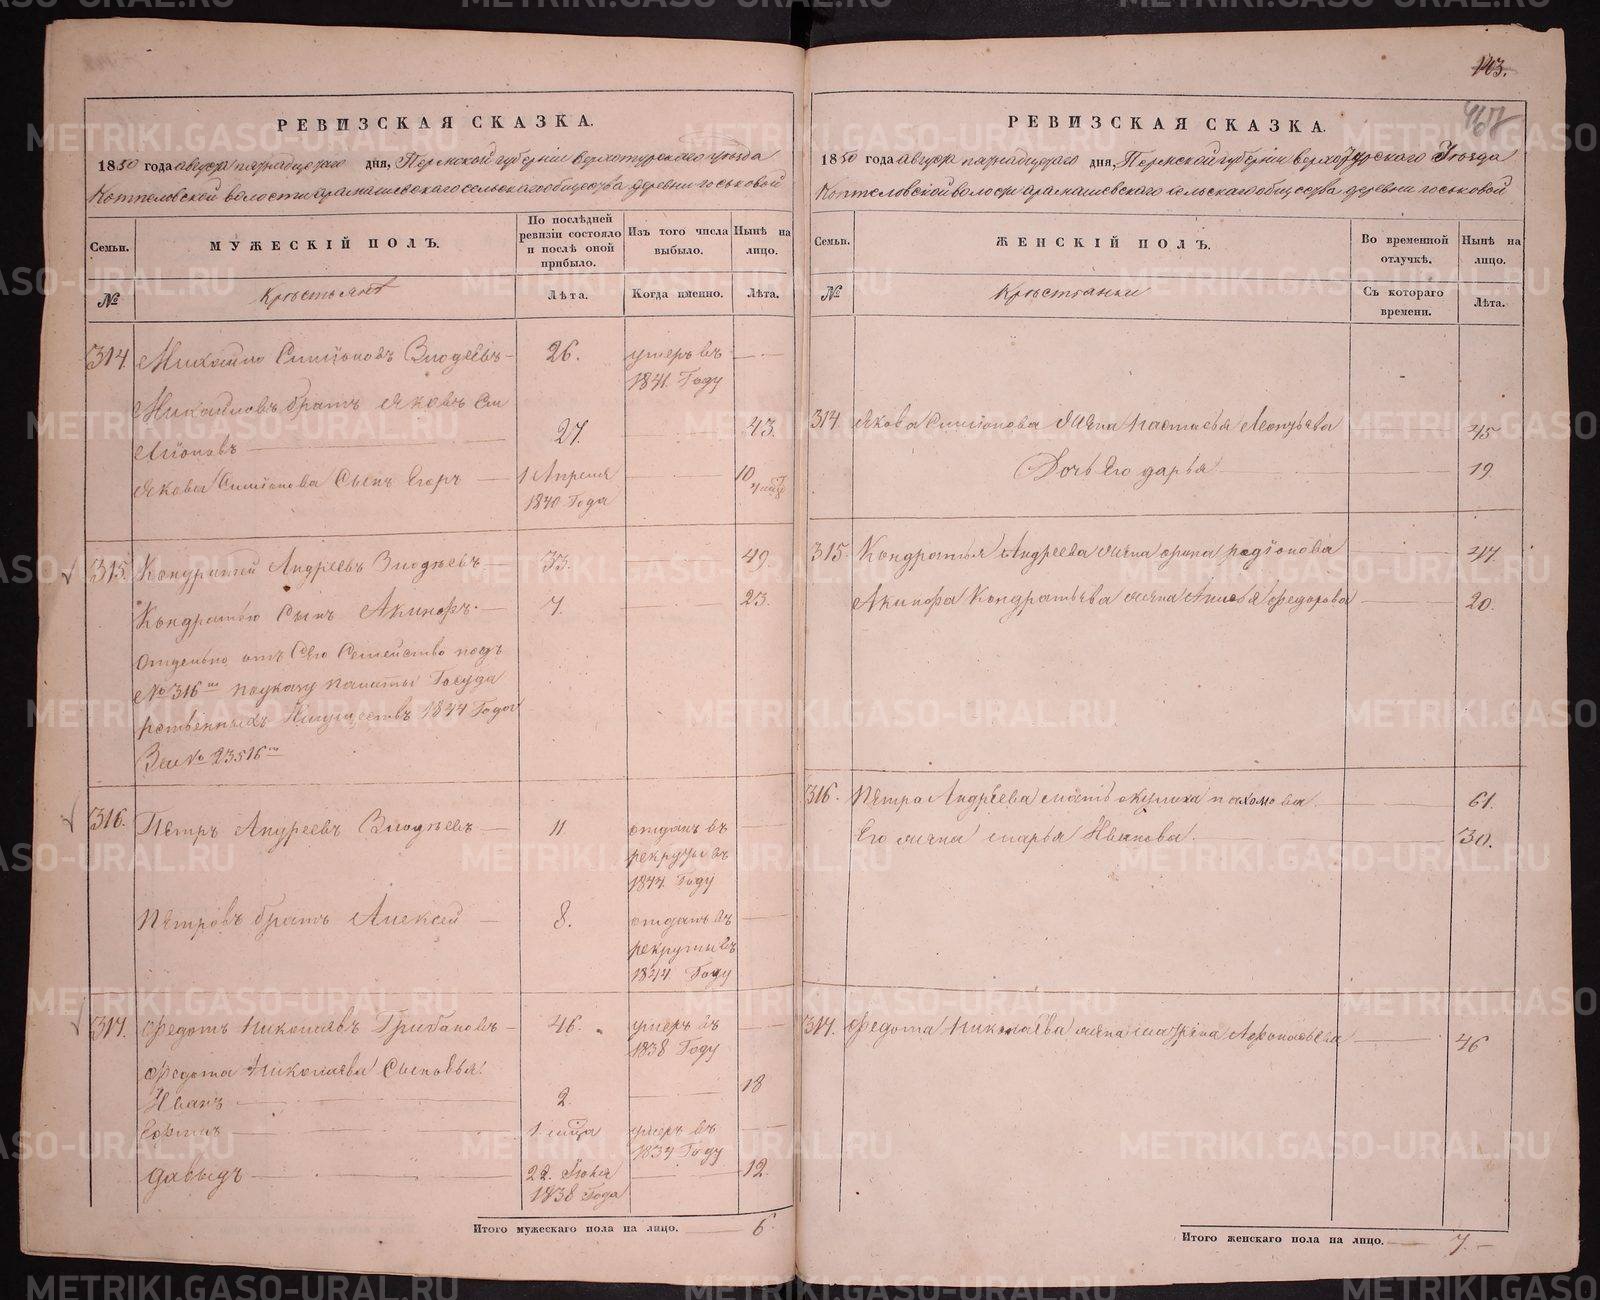 143.
467
РЕВИЗСКАЯ СКАЗКА.
1850 года августа пятнадцатаго дня, Пермской губерніи верхотурскаго уезда
Коптеловской волости арамашевскаго сельскаго общества деревни госьковой
Семьи.
МУЖЕСКІЙ ПОЛЪ.
По послѣдней ревизіи состояло и послѣ оной прибыло.
Изъ того числа выбыло.
Нынѣ на лицо.
№
Крестьянъ
Лѣта.
Когда именно.
Лѣта.
314. Михайло Симіоновъ Злодеевъ 26. умеръ въ
1841. Году
Михайловъ братъ Яковъ Си
міоновъ 27. 43.
Якова Симіонова Сынъ Егоръ 1 Апреля 10
1840. Года
315. Кондратей Андреевъ Злодѣевъ 33. 49.
Кондратью Сынъ Акинфъ 7. 23.
отдельно отъ Сего Семейство подъ
№ 316 по указу палаты Госуда
рственныхъ Имуществъ 1844 Года
За № 23516
316. Петръ Андреевъ Злодѣевъ 11 отданъ въ
рекруты въ
1844. Году
Петровъ братъ Алексей 8. отданъ въ
рекруты въ
1844. Году
317. Федотъ Николаевъ Грибановъ 46. умеръ въ
1838 Году
Федота Николаева Сыновья:
Иванъ 2. 18
Ефимъ 1. умеръ въ
1834 Году
Давыдъ 22. Іюня 12.
1838 Года
Итого мужескаго пола на лицо. 6.
РЕВИЗСКАЯ СКАЗКА.
1850 года августа пятнадцатаго дня, Пермской губерніи верхотурскаго Уезда
Коптеловской волости арамашевскаго сельскаго общества деревни госьковой
Семьи.
ЖЕНСКІЙ ПОЛЪ.
Во временной отлучкѣ.
Нынѣ на лицо.
№
Крестьянки
Съ котораго времени.
Лѣта.
314. Якова Симіонова жена настасья Леонтьева 45
Дочь Его дарья 19
315. Кондратья Андреева жена орина родіонова 47
Акинфа Кондратьева жена федорова 20.
316. Петра Андреева мать окулина пахомова 61.
Его жена марья Иванова. 30.
317. Федота Николаева жена Афонасьева 46
Итого женскаго пола на лицо. 7.